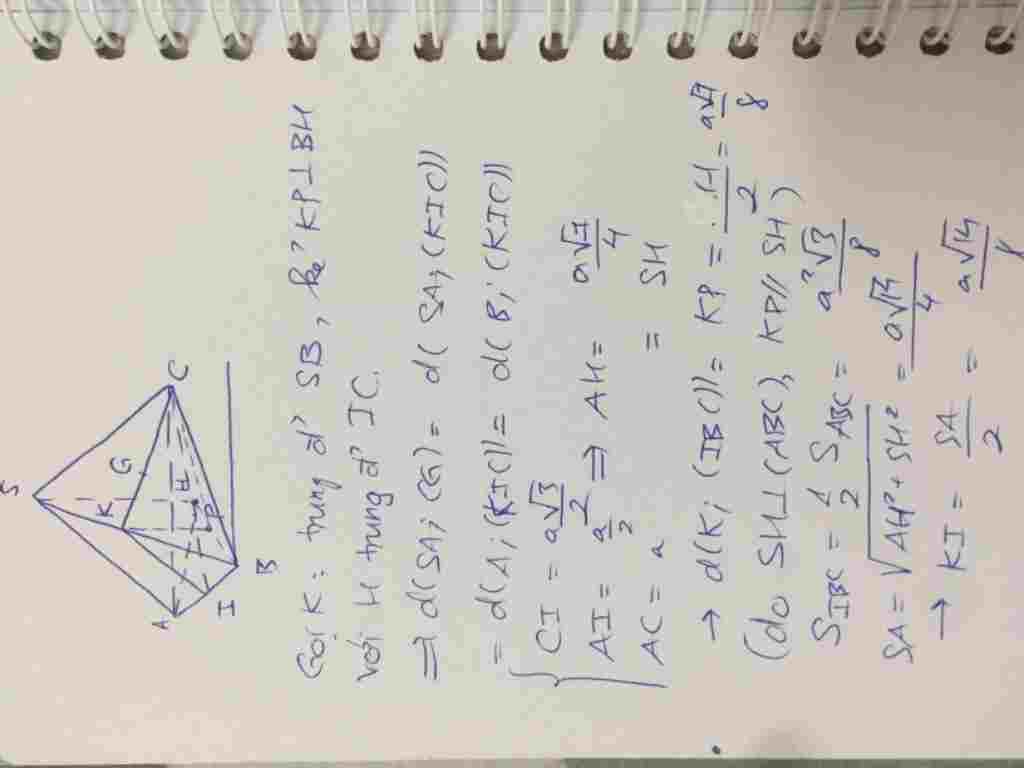 S
K
G
C
A
H
P
I
B
Gọi K: trung đ' SB, kẻ KP⊥BH
với H trung đ' IC.
⇒ d(SA; CG) = d(SA; (KIC))
= d(A; (KIC)) = d(B; (KIC))
CI = a√3/2
AI = a/2 ⇒ AH = a√7/4
AC = a = SH
→ d(K; (IBC)) = KP = H/2 = a√7/8
(do SH⊥(ABC), KP// SH)
S_IBC = 1/2 S_ABC = a²√3/8
SA = √(AH² + SH²) = a√14/4
→ KI = SA/2 = a√14/8